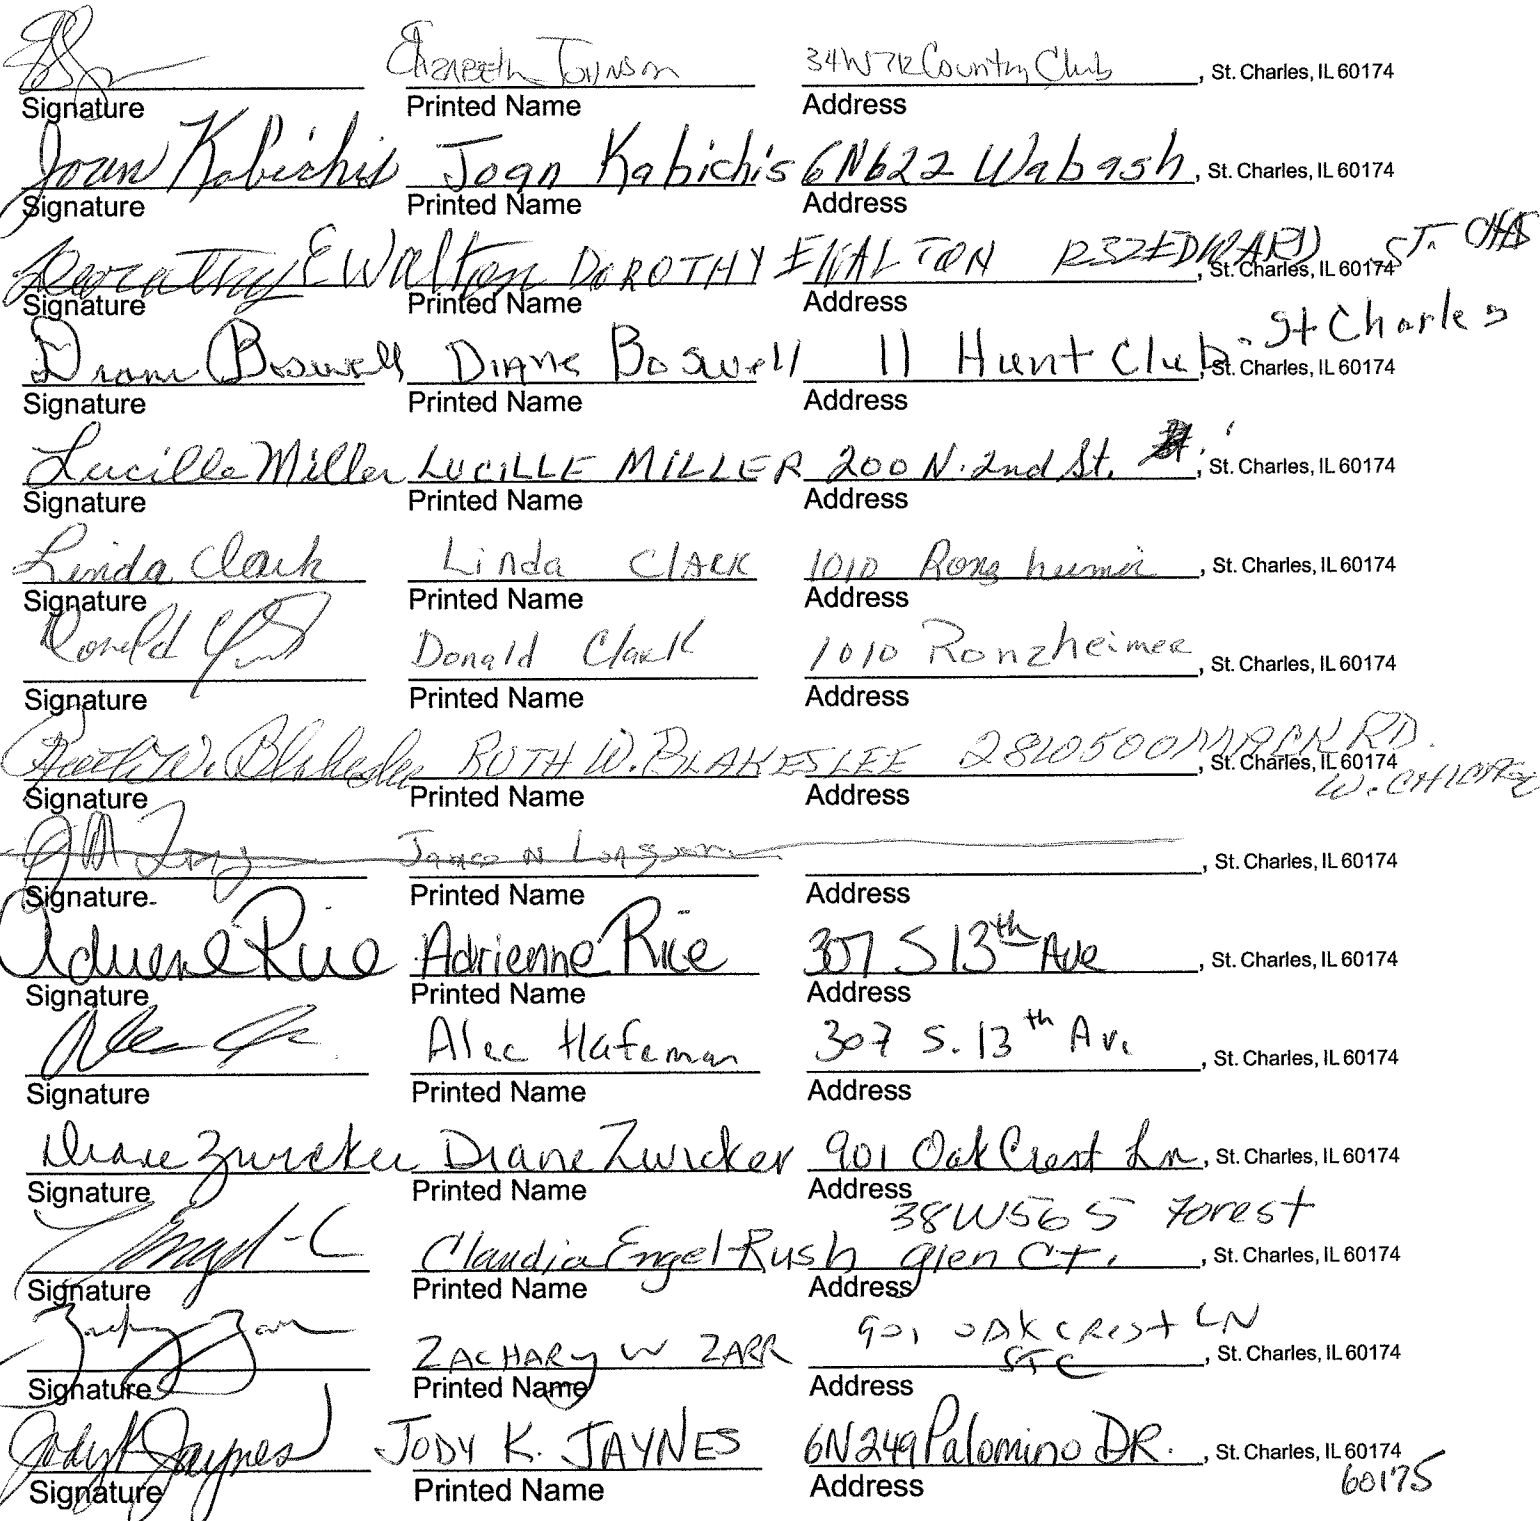 Elizabeth Johnson 34W712 Country Club, St. Charles, IL 60174
Signature Printed Name Address
Joan Kabichis Joan Kabichis 6N622 Wabash, St. Charles, IL 60174
Signature Printed Name Address
Dorothy E Walton DOROTHY E WALTON 1232 EDWARD ST. CHAS, St. Charles, IL 60174
Signature Printed Name Address
Diane Boswell Diane Boswell 11 Hunt Club St Charles, St. Charles, IL 60174
Signature Printed Name Address
Lucille Miller LUCILLE MILLER 200 N. 2nd St., St. Charles, IL 60174
Signature Printed Name Address
Linda Clark Linda Clark 1010, St. Charles, IL 60174
Signature Printed Name Address
Donald Donald Clark 1010 Ronzheimer, St. Charles, IL 60174
Signature Printed Name Address
Ruth W. Blakeslee RUTH W. BLAKESLEE 28W500 MACK RD., St. Charles, IL 60174
W. CHICAGO
Signature Printed Name Address
James N, St. Charles, IL 60174
Signature Printed Name Address
Adrienne Rice Adrienne Rice 307 S 13th Ave, St. Charles, IL 60174
Signature Printed Name Address
Alec Hafeman 307 S. 13th Ave, St. Charles, IL 60174
Signature Printed Name Address
Diane Zwicker Diane Zwicker 901 Oak Crest Ln, St. Charles, IL 60174
Signature Printed Name Address
38W565 Forest
Claudia Engel-Rush Glen Ct., St. Charles, IL 60174
Signature Printed Name Address
901 OAK CREST LN
Zachary Zarr ZACHARY W ZARR STC, St. Charles, IL 60174
Signature Printed Name Address
Jody K Jaynes JODY K. JAYNES 6N249 Palomino DR., St. Charles, IL 60174
60175
Signature Printed Name Address